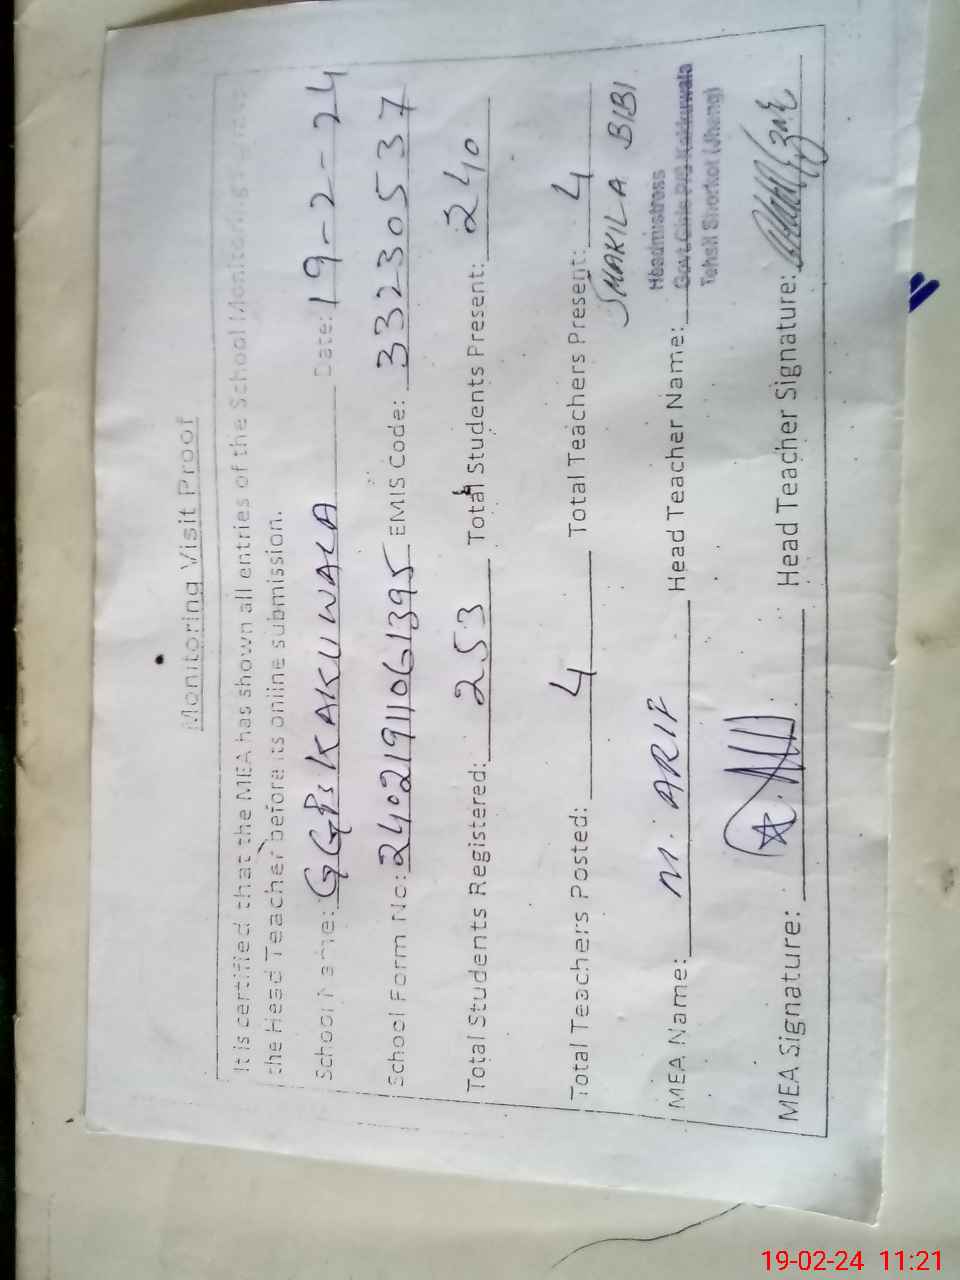 Monitoring Visit Proof
It is certified that the MEA has shown all entries of the School Monitoring
the Head Teacher before its online submission.
School Name: GGPS KAKUWALA Date: 19-2-24
School Form No: 2402191106 1395 EMIS Code: 33230537
Total Students Registered: 253 Total Students Present: 240
Total Teachers Posted: 4 Total Teachers Present: 4
SHAKILA BIBI
MEA Name: M. ARIF Head Teacher Name:
Headmistress
Govt Girls P/S Kakkuwala
Tehsil Shorkot (Jhang)
MEA Signature: Head Teacher Signature:
19-02-24 11:21